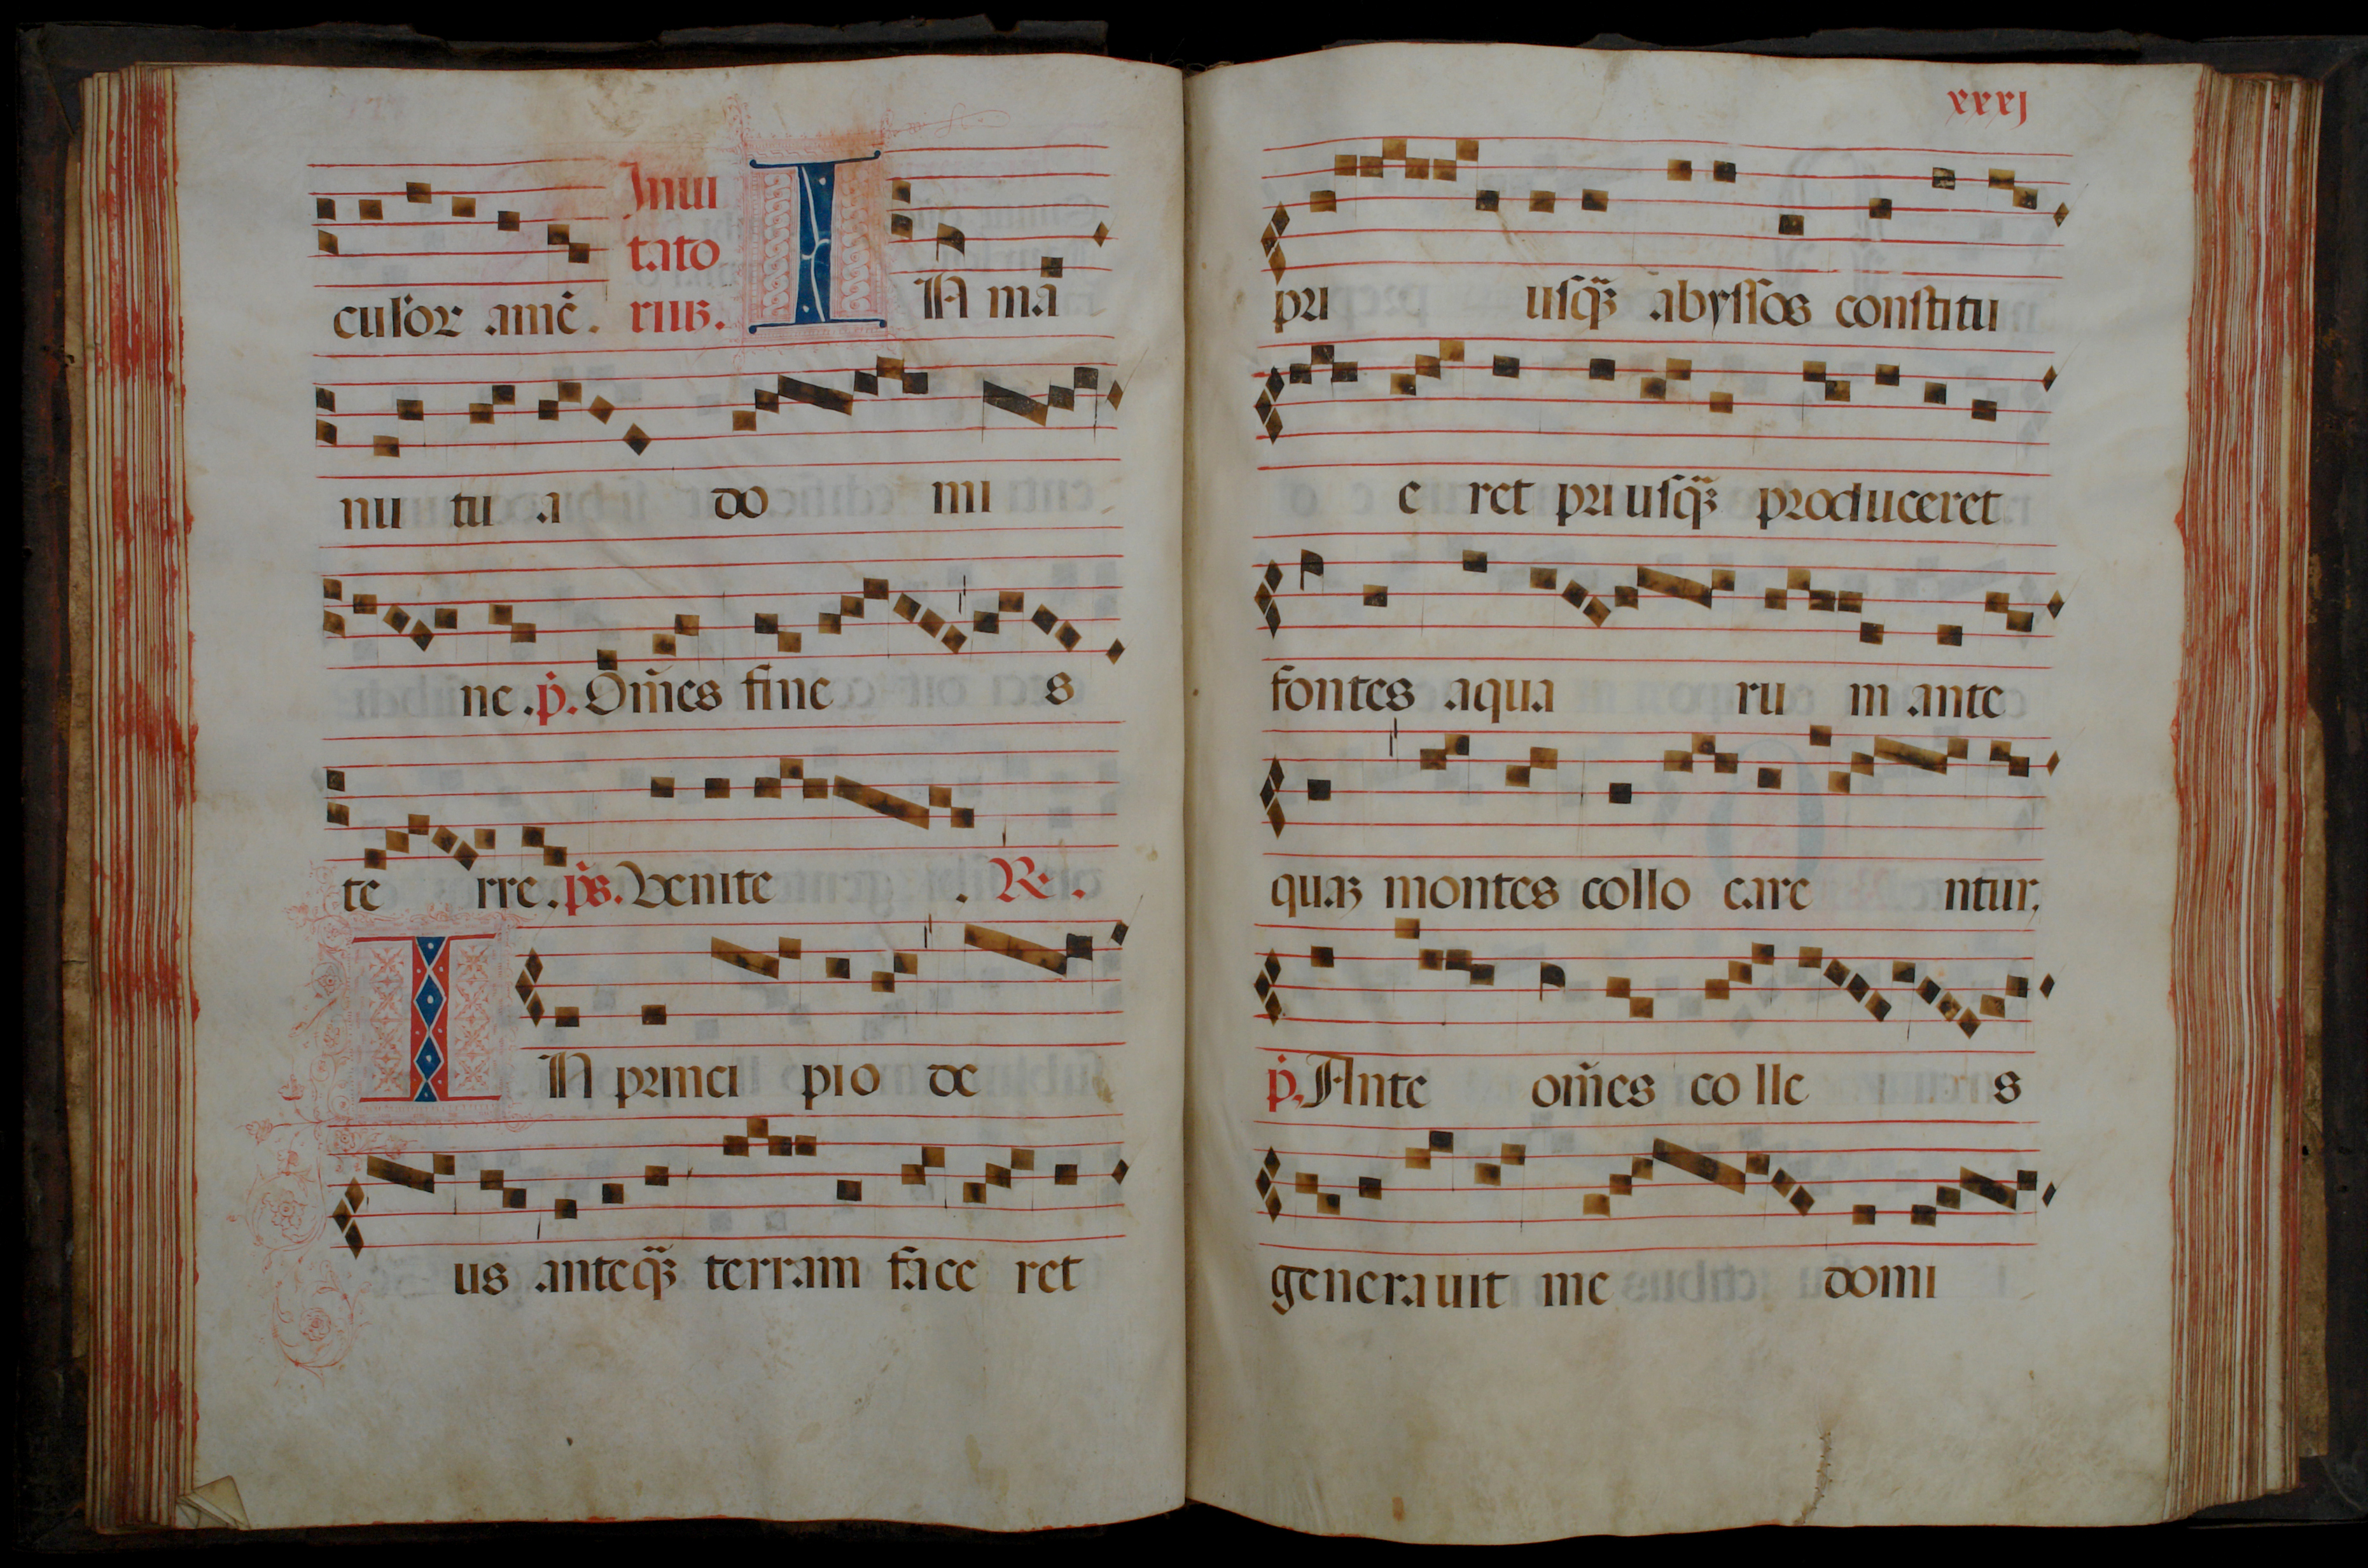 culor amē. Inui
tato
rius. IN ma
nu tu a do mi
ne. p̄. Om̄es fine s
te rre. p̄s. Venite . R̄.
IN princi pio de
us anteq̄ʒ terram face ret
xxxj
pri usq̄ʒ abyssos constitu
e ret priusq̄ʒ produceret
fontes aqua ru m ante
quaʒ montes collo care ntur,
p̄. Ante om̄es colle s
generauit me domi